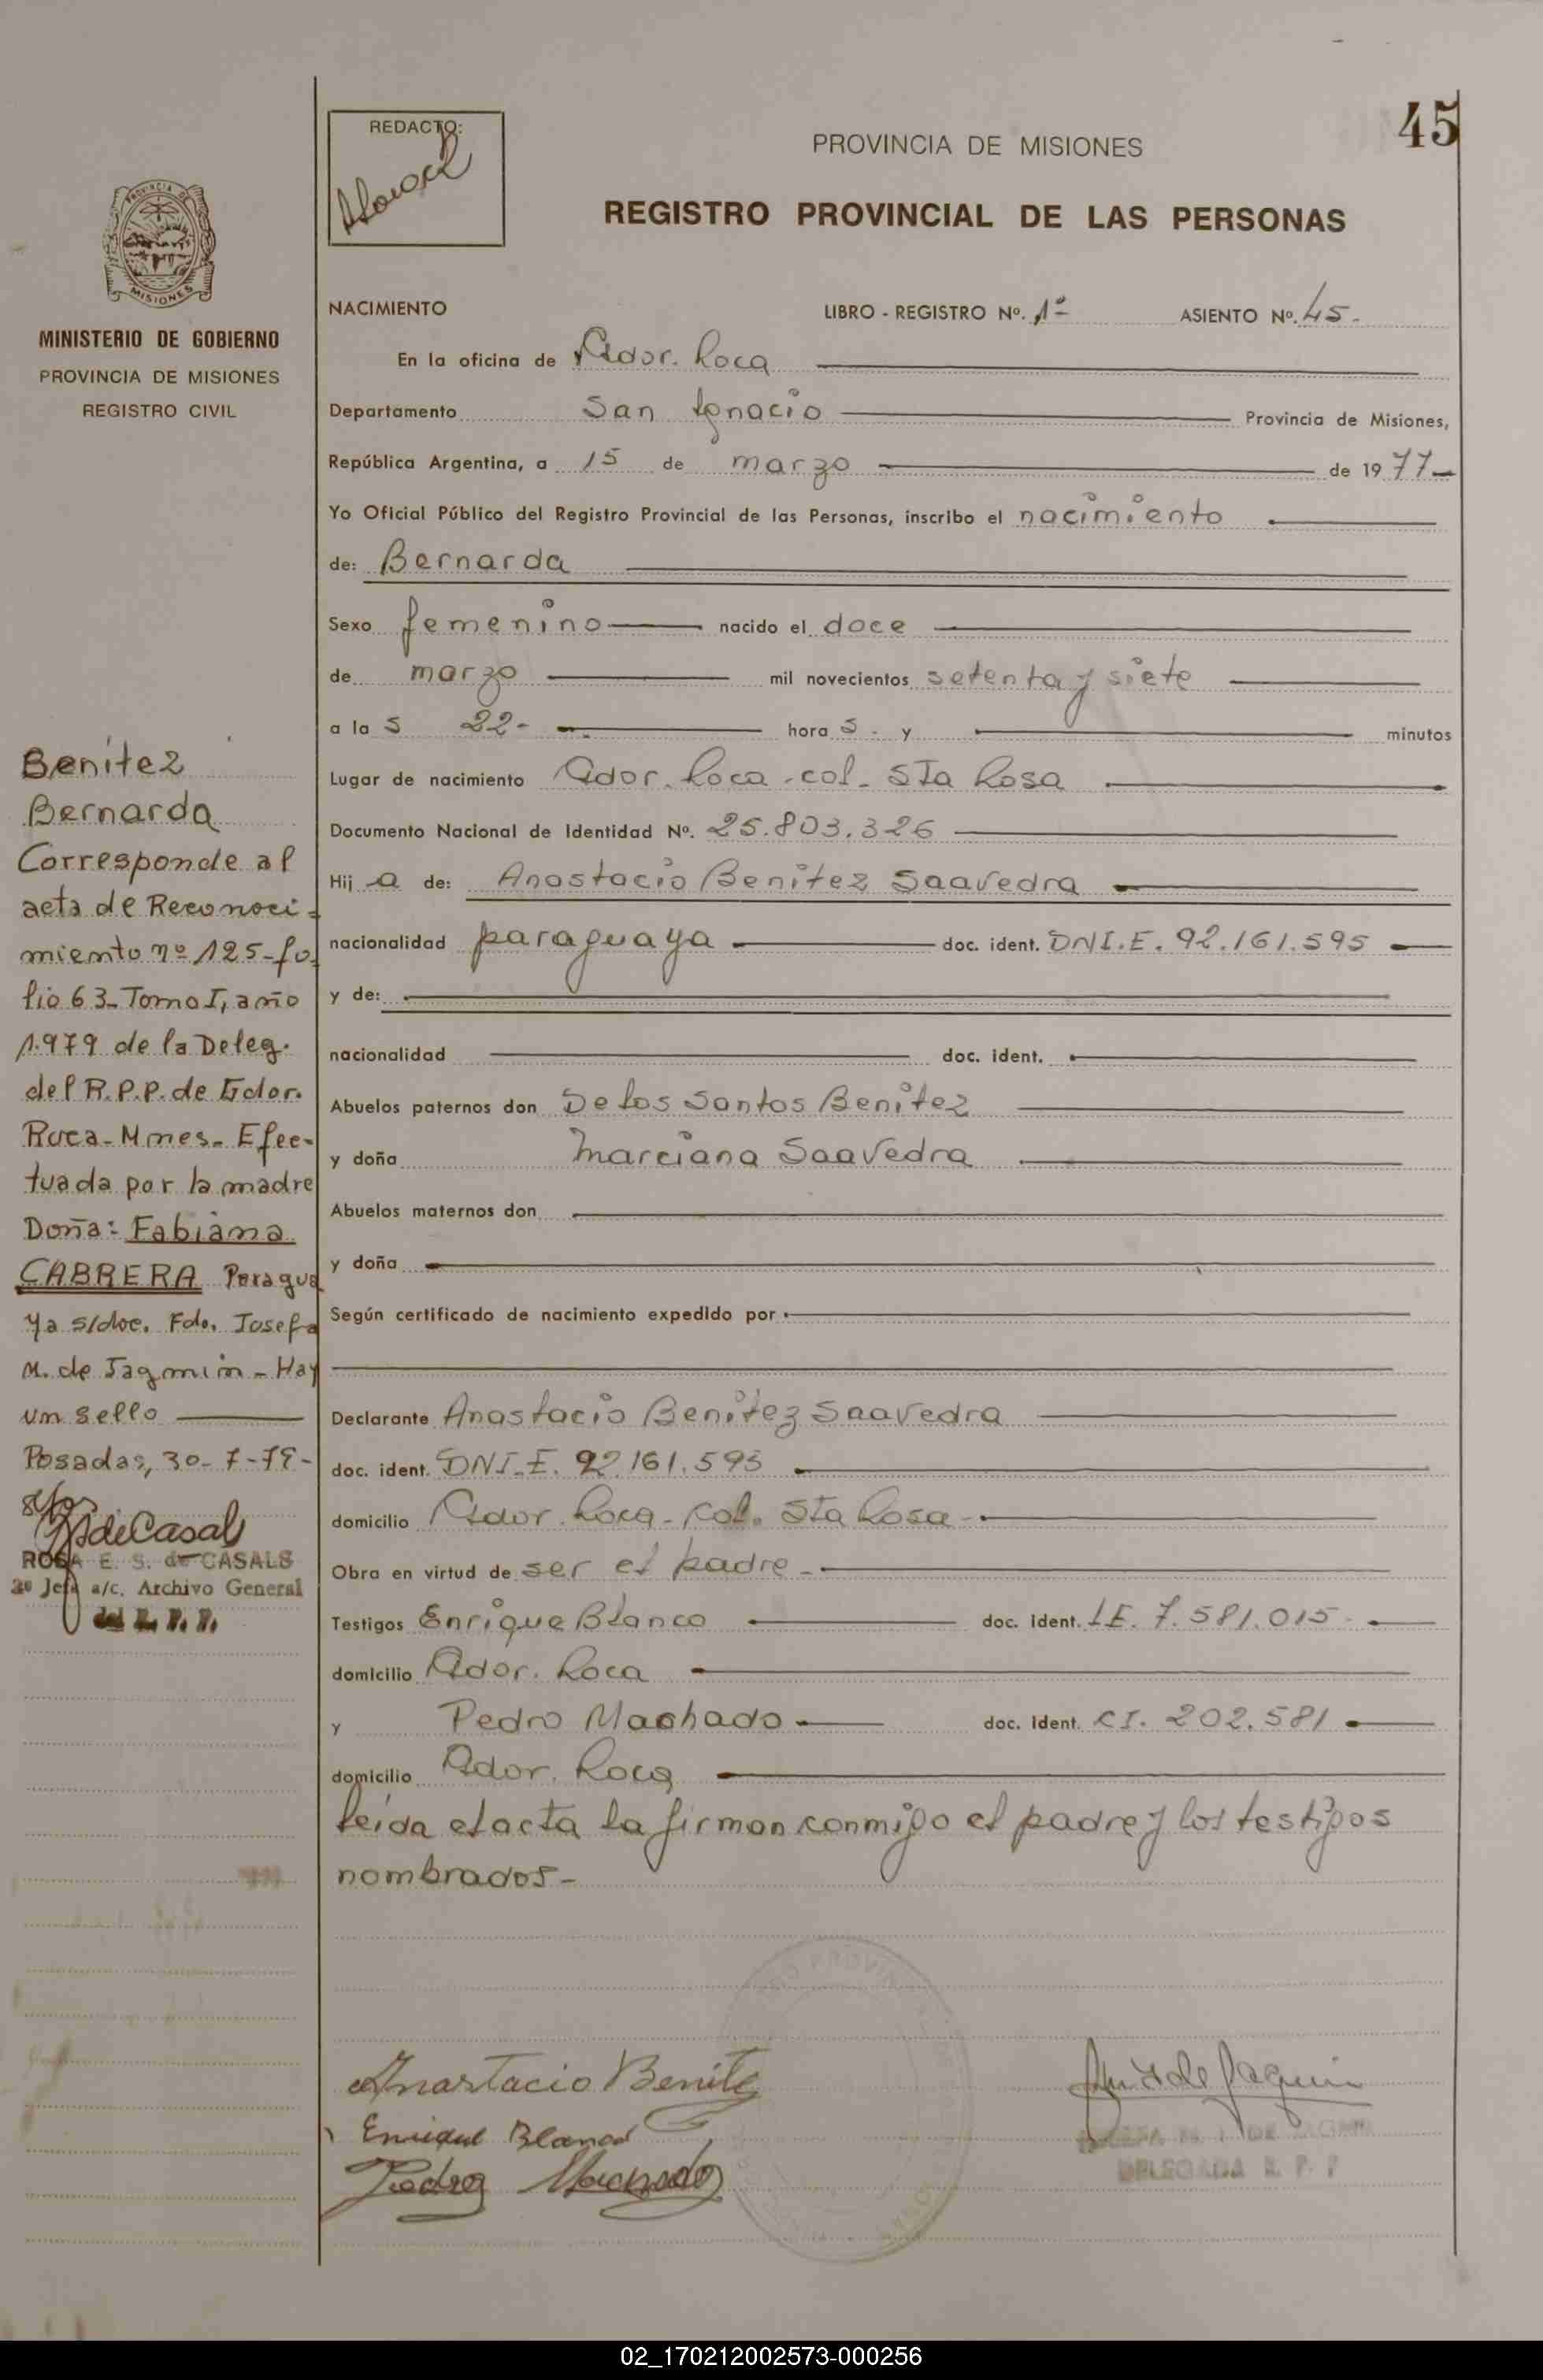 45
REDACTO:
PROVINCIA DE MISIONES
REGISTRO PROVINCIAL DE LAS PERSONAS
PROVINCIA DE
MISIONES
MINISTERIO DE GOBIERNO
PROVINCIA DE MISIONES
REGISTRO CIVIL
NACIMIENTO LIBRO - REGISTRO Nº. 1º- ASIENTO Nº. 45-
En la oficina de Gdor. Roca
Departamento San Ignacio Provincia de Misiones,
República Argentina, a 15 de marzo de 1977-
Yo Oficial Público del Registro Provincial de las Personas, inscribo el nacimiento
de: Bernarda
Sexo femenino nacido el doce
de marzo mil novecientos setenta y siete
a la s 22- hora s - y minutos
Lugar de nacimiento Gdor. Roca - col. Sta Rosa
Documento Nacional de Identidad Nº. 25.803.326
Hij a de: Anastacio Benitez Saavedra
nacionalidad paraguaya doc. ident. DNI.E. 92.161.595
y de:
nacionalidad doc. ident.
Abuelos paternos don De los Santos Benitez
y doña Marciana Saavedra
Abuelos maternos don
y doña
Según certificado de nacimiento expedido por
Declarante Anastacio Benitez Saavedra
doc. ident. DNI.E. 92.161.595
domicilio Gdor. Roca - Col. Sta Rosa -
Obra en virtud de ser el padre -
Testigos Enrique Blanco doc. ident. LE. 7.581.015-
domicilio Gdor. Roca
y Pedro Machado doc. ident. CI. 202.581
domicilio Gdor. Roca
leída el acta la firman conmigo el padre y los testigos
nombrados-
Anastacio Benitez
Enrique Blanco
Pedro Machado
DELEGADA R. P. P
Benitez
Bernarda
Corresponde al
acta de Reconoci-
miento nº 125-fo-
lio 63- Tomo I, año
1.979 de la Deleg.
del R.P.P. de Gdor.
Roca- Mnes- Efec-
tuada por la madre
Doña: Fabiana
CABRERA Paragua
ya s/doc. Fdo. Josefa
M. de Jagmin - Hay
un sello
Posadas, 30-7-79-
ROSA E. S. de CASALS
2º Jefe a/c. Archivo General
del R. P. P.
02_170212002573-000256